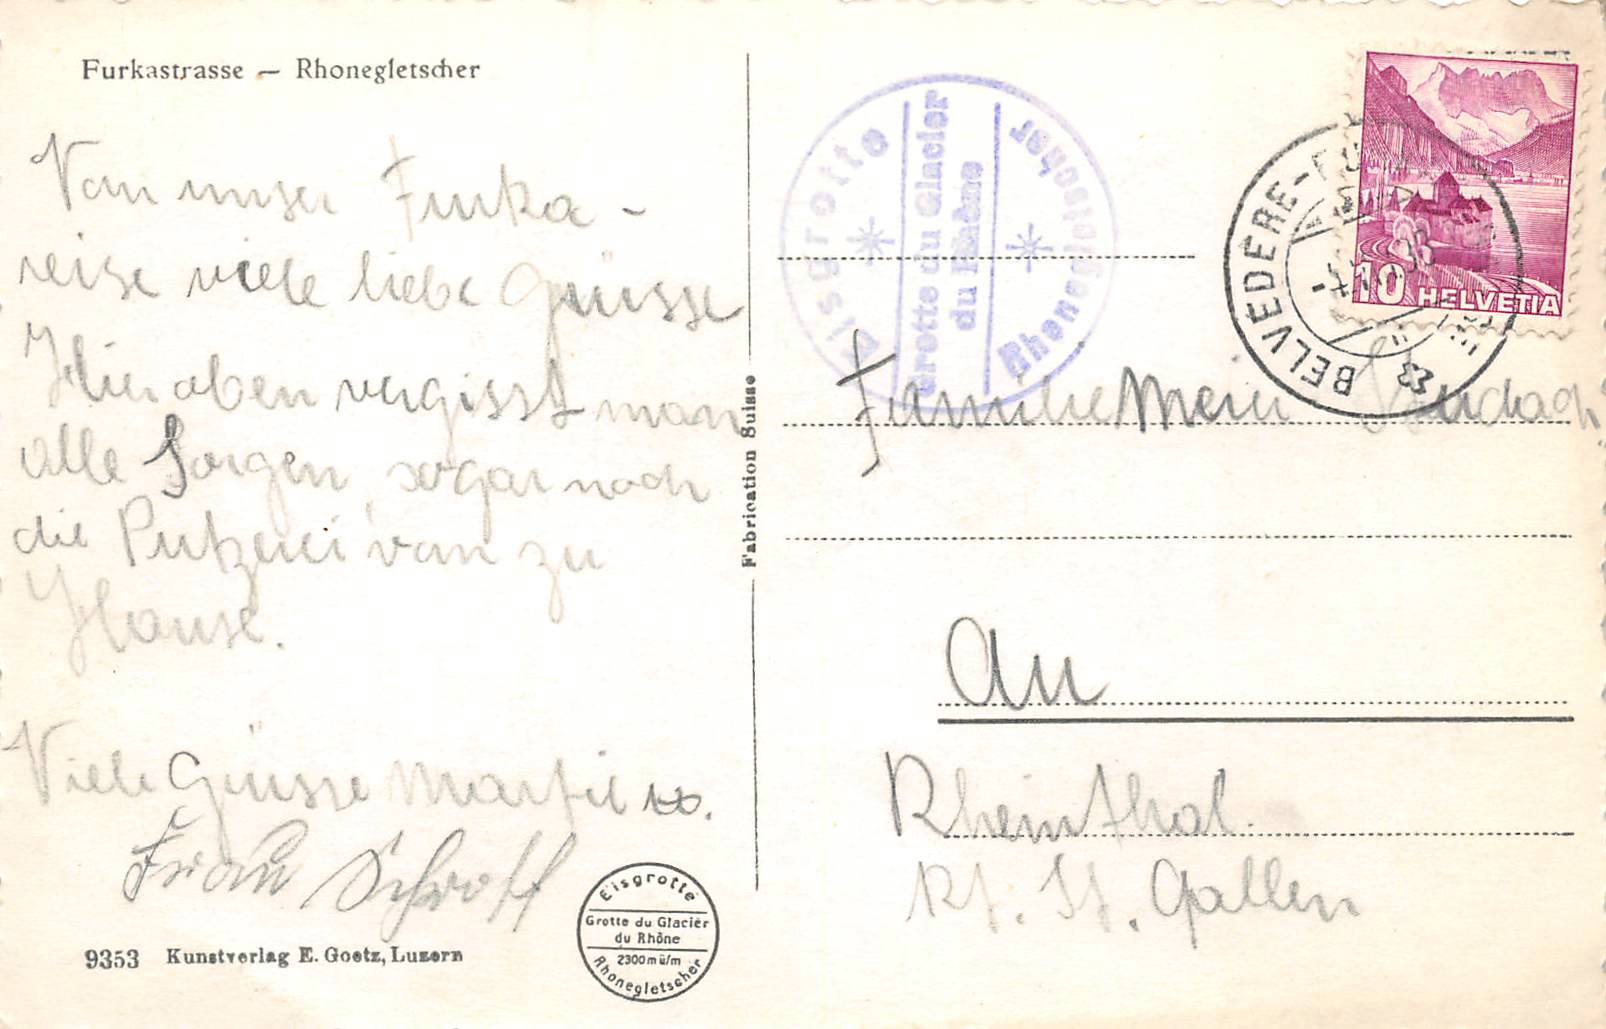 Furkastrasse — Rhonegletscher
Von unser Furka-
reise viele liebe Grüsse
Hier oben vergisst man
alle Sorgen, sogar noch
die Putzerei von zu
Hause.
Viele Grüsse
Frau Schroff
9353 Kunstverlag E. Goetz, Luzern
Eisgrotte
Grotte du Glacier
du Rhône
2300 m ü/m
Rhonegletscher
Fabrication Suisse
Eisgrotte
Grotte du Glacier
du Rhône
Rhonegletscher
BELVEDERE-FU
10 HELVETIA
Familie Meier
Au
Rheinthal.
Kt. St. Gallen